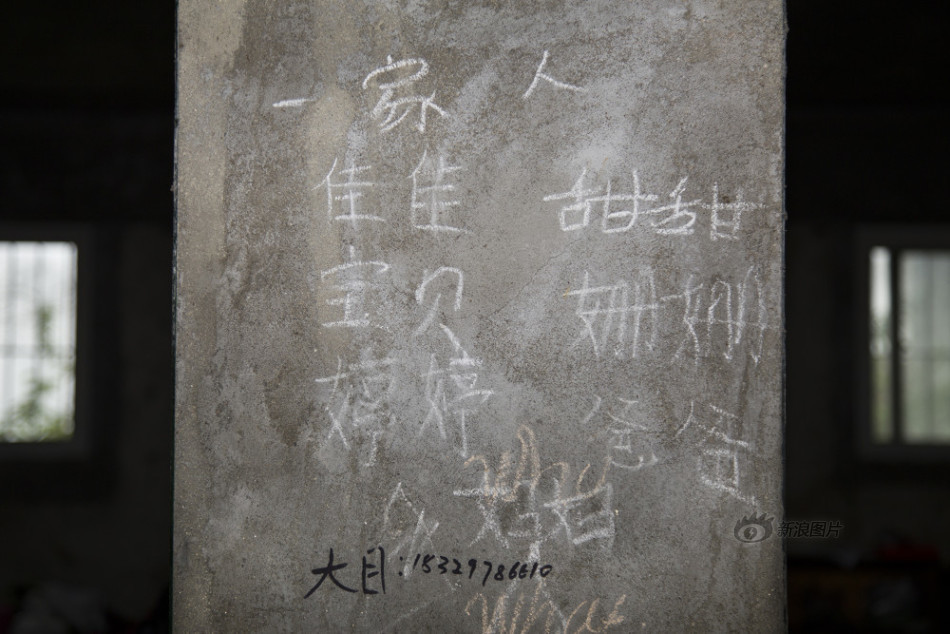 一家人
佳佳 甜甜
宝贝 姗姗
婷婷 爸爸
妈妈
大目:15329786610
What
新浪图片